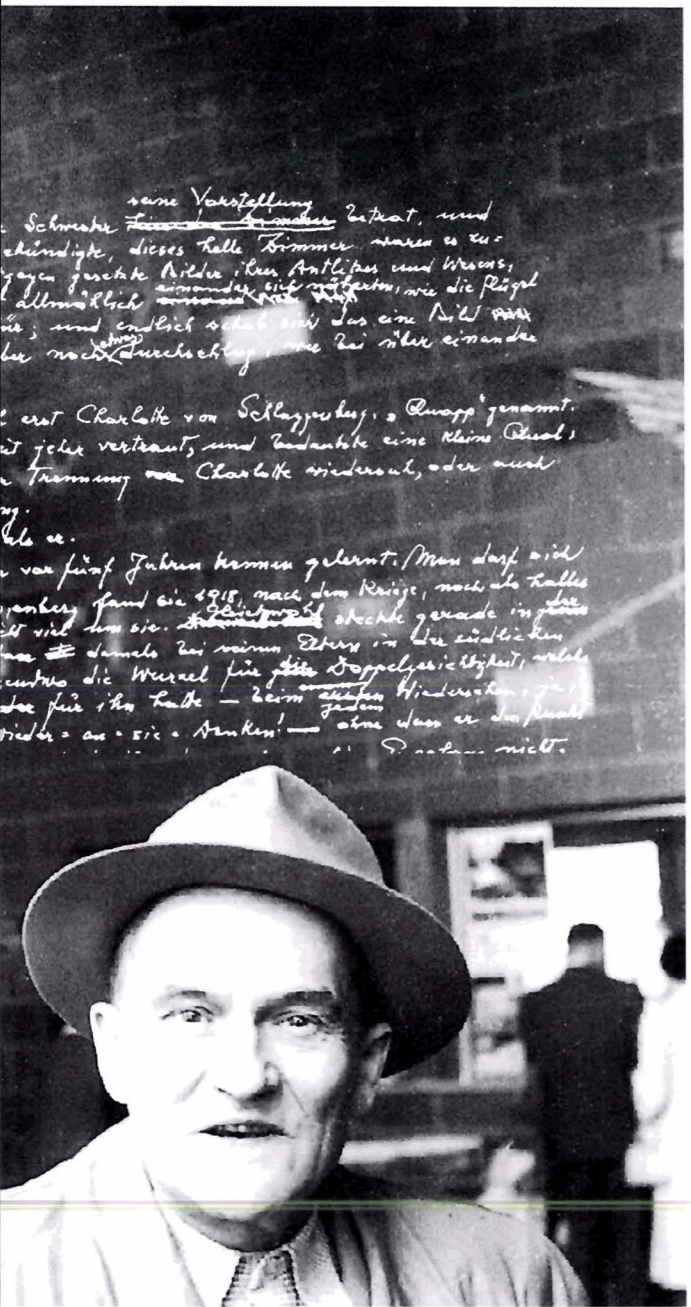 seine Vorstellung
Schwester betrat, und
ekündigte, dieses helle Zimmer waren es zu=
gegen gesetzte Bilder ihres Antlitzes und Wesens,
allmählich einander sich näherten, wie die Flügel
ür; und endlich schob sich das eine Bild
ber noch etwas durchschlug, wie bei über einander
erst Charlotte von Schlaggenberg, „Quapp" genannt.
eit jeher vertraut, und bedeutete eine kleine Qual,
Trennung Charlotte wiedersah, oder auch
ng.
als er.
vor fünf Jahren kennen gelernt. Man darf sich
genberg fand sie 1918, nach dem Kriege, noch als halbes
cht viel um sie. Gleichwohl steckte gerade in der
damals bei seinen Eltern in der südlichen
gendwo die Wurzel für Doppelgesichtigkeit, welche
für ihn hatte — beim jedem Wiedersehen, ja,
Wieder=an=sie=denken! — ohne dass er den Punkt
nicht.